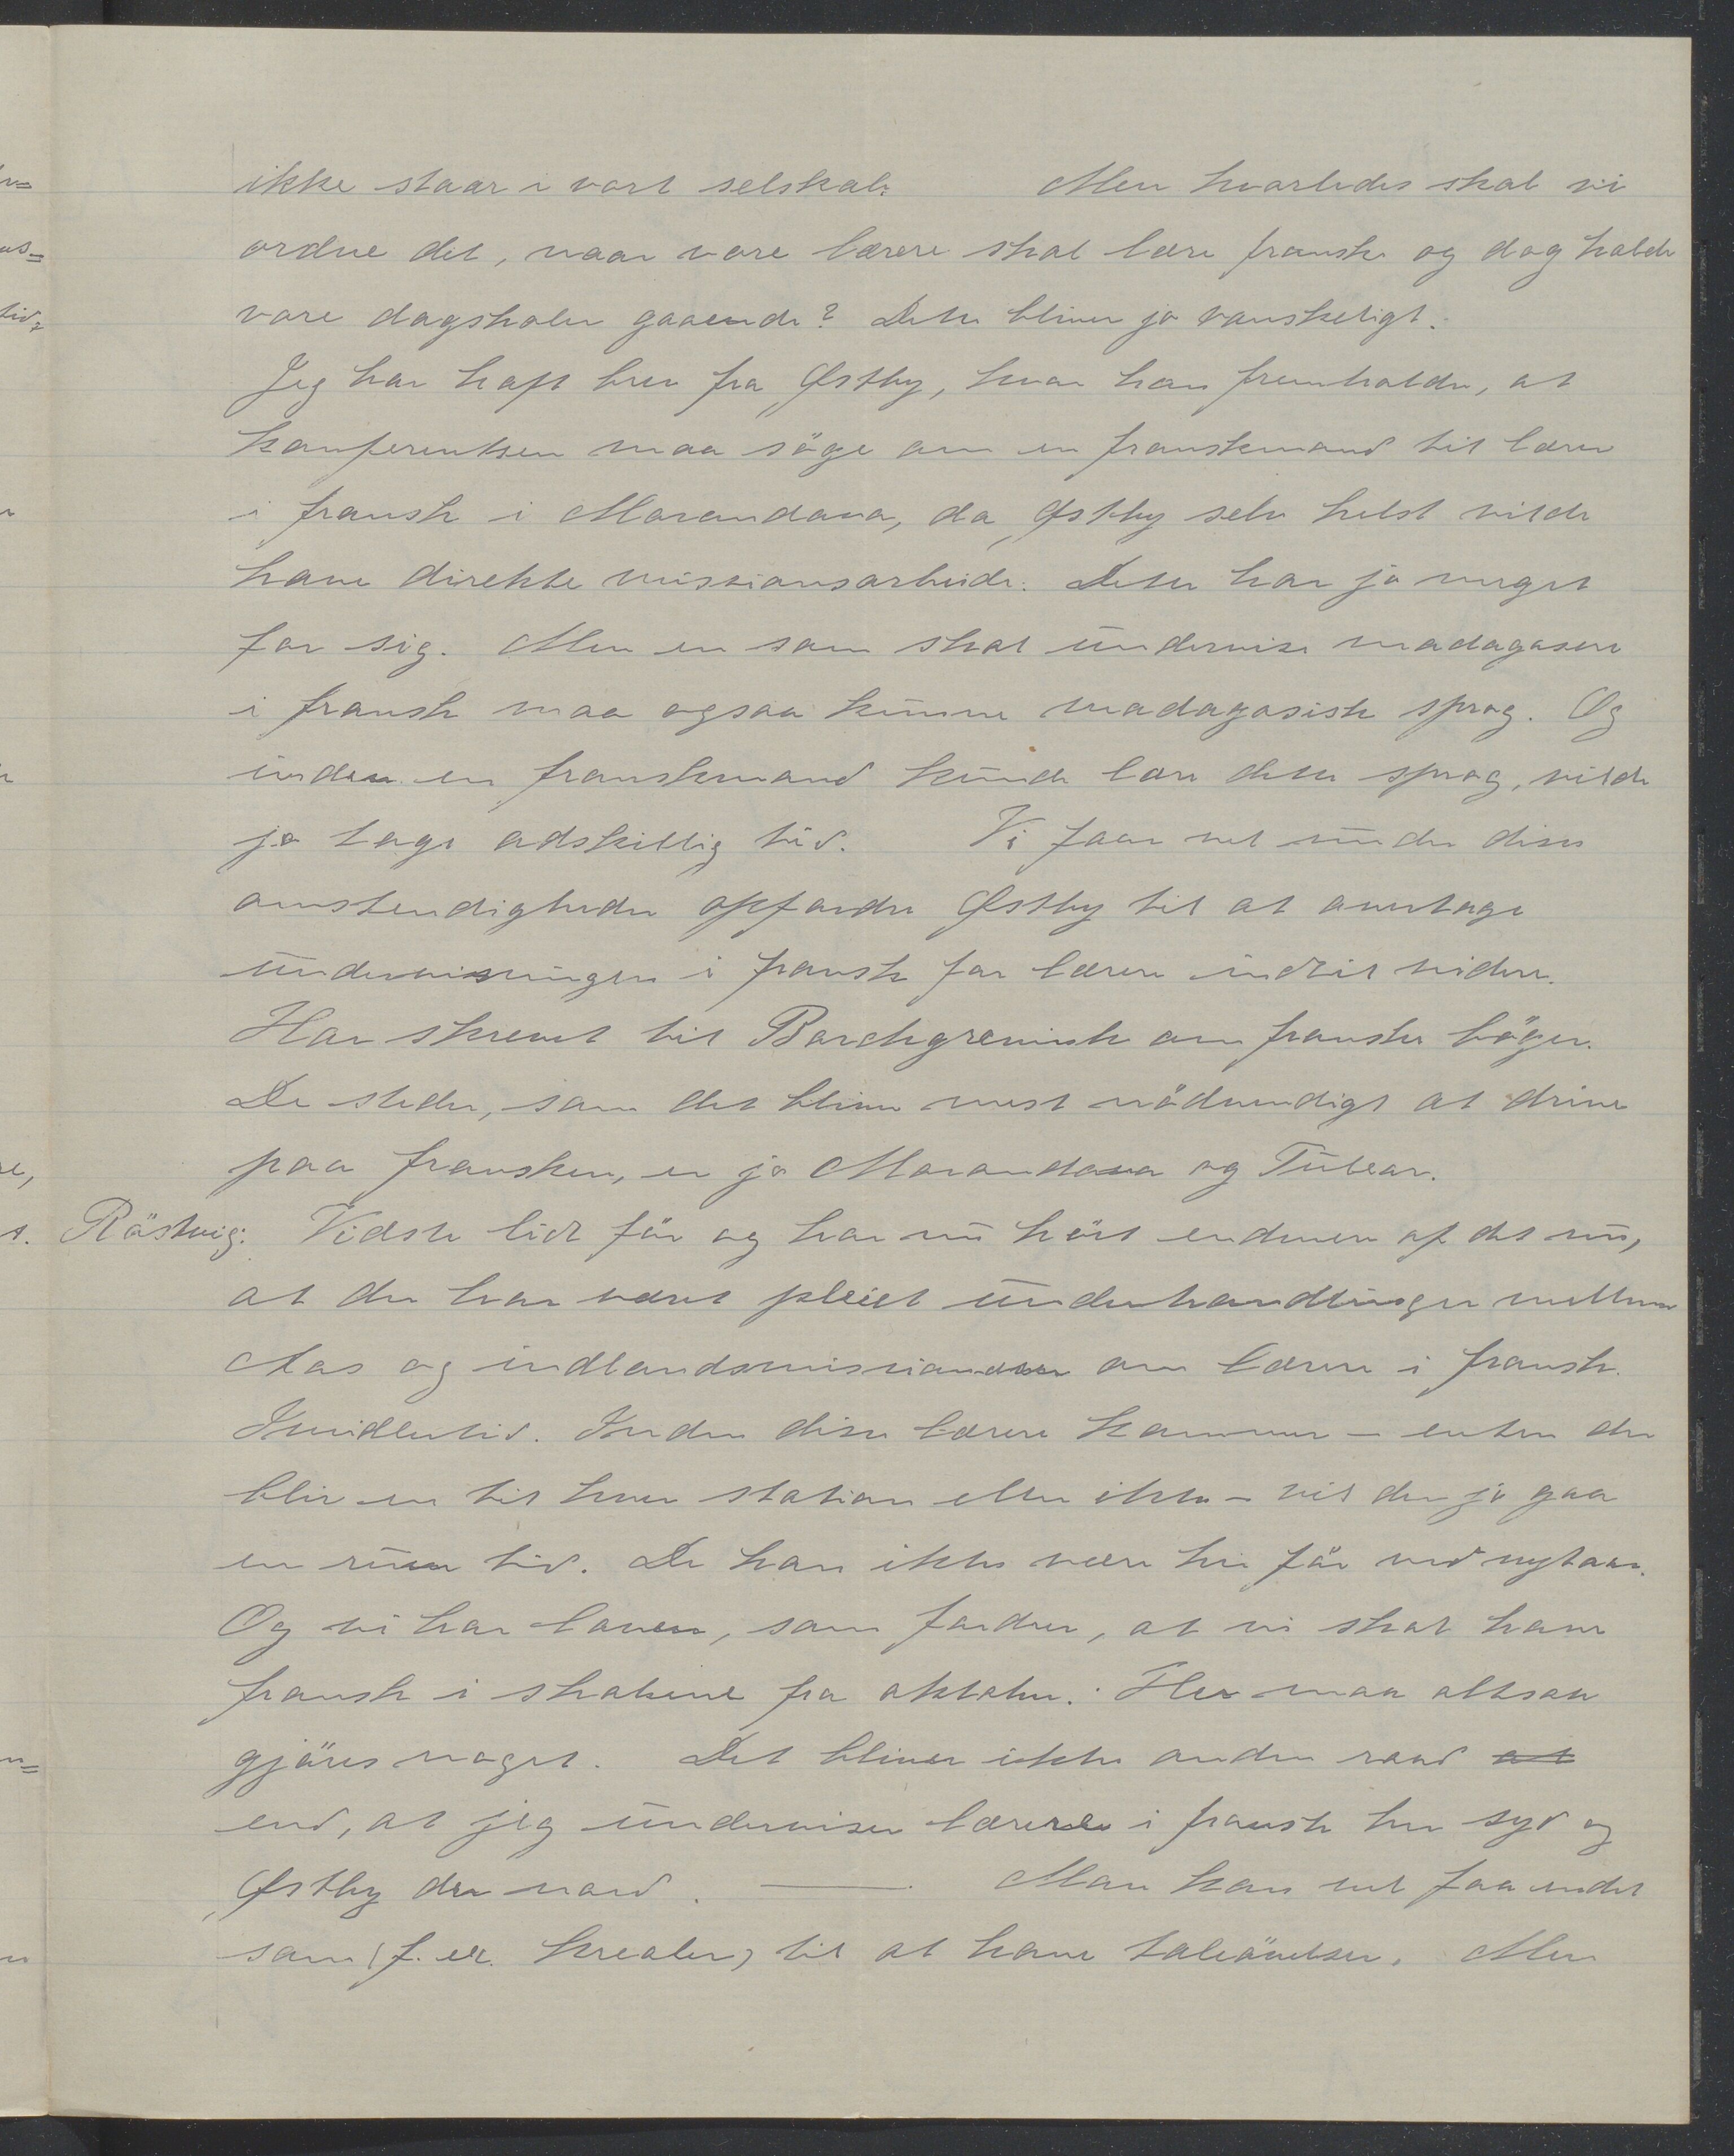 ikke staar i vort selskab. Men hvorledes skal vi
ordne det, naar vore lærere skal lære fransk og dog holde
vore dagskoler gaaende? Dette bliver jo vanskeligt.
Jeg har haft brev fra Østby, hvor han fremholder, at
konferentsen maa söge om en franskmand til lærer
i fransk i Morondava, da Østby selv helst vilde
have direkte missionsarbeide. Dette har jo meget
for sig. Men en som skal undervise madagasere
i fransk maa ogsaa kunne madagasisk sprog. Og
inden en franskmand kunde lære dette sprog, vilde
jo tage adskillig tid. Vi faar vel under disse
omstendigheder opfordre Østby til at overtage
undervisningen i fransk for lærere indtil videre.
Har skrevet til Borchgrevink om franske böger.
De steder, som det bliver mest nödvendigt at drive
paa fransken, er jo Morondava og Tulear.
Röstvig: Vidste lidt för og har nu hört endmere af det nu,
at der har været pleiet underhandlinger mellem
Aas og indlandsmissionærer om lærere i fransk.
Imidlertid. Inden disse lærere kommer – enten der
blir en til hver station eller ikke – vil der jo gaa
en rum tid. De kan ikke være her för ved nytaar.
Og vi har loven, som fordrer, at vi skal have
fransk i skolene fra oktober. Her maa altsaa
gjöres noget. Det bliver ikke anden raad at
end, at jeg underviser lærere i fransk her syd og
Østby der nord. ——. Man kan vel faa endel
som (f. ex. kreoler) til at have taleövelser. Men